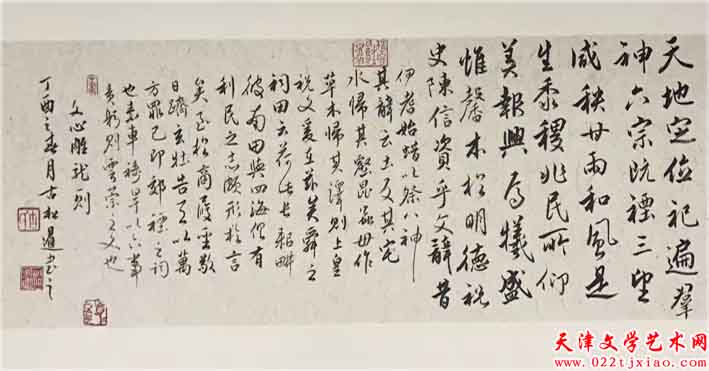 天地定位祀遍羣
神六宗既禋三望
咸秩甘雨和風是
生黍稷兆民所仰
美報興焉犧盛
惟馨本於明德祝
史陳信資乎文辭昔
伊耆始蜡以祭八神
其辭云土反其宅
水歸其壑昆蟲毋作
草木歸其澤則上皇
祝文爰在茲矣舜之
祠田云荷此長耜畊
彼南田與四海俱有
利民之志頗形於言
矣至於商履聖敬
日躋玄牡告天以萬
方罪己即郊禋之詞
也素車禱旱以六事
責躬則雩禜之文也
文心雕龍則
丁酉之春月古松書之
天津文学艺术网
www.022tjxiao.com